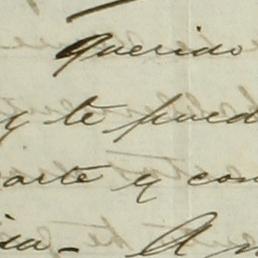 Querido
y te pued
arte y con
isa_ A m